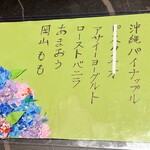 沖縄パイナップル
アサイーヨーグルト
ローストバニラ
あまおう
岡山もも